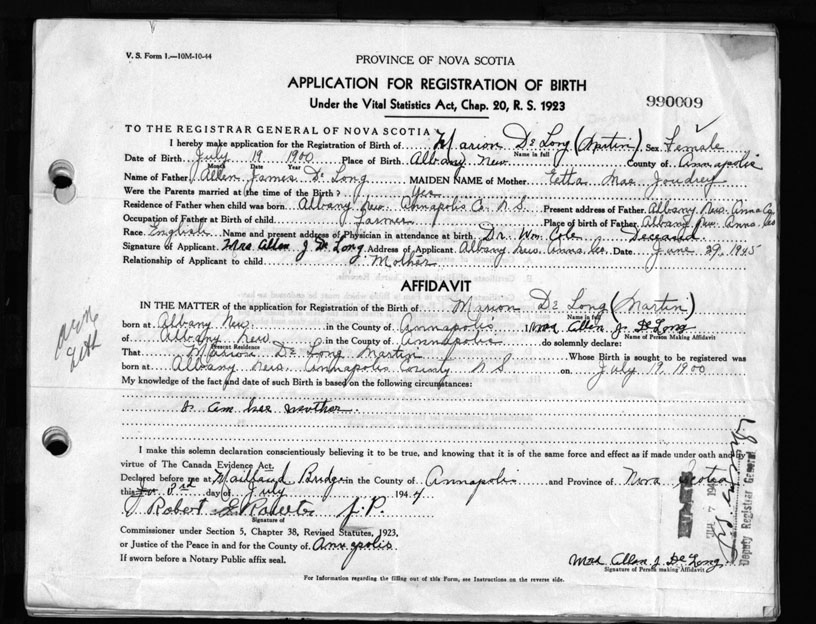 V. S. Form 1.—10M-10-44
PROVINCE OF NOVA SCOTIA
APPLICATION FOR REGISTRATION OF BIRTH
Under the Vital Statistics Act, Chap. 20, R. S. 1923
990009
TO THE REGISTRAR GENERAL OF NOVA SCOTIA
I hereby make application for the Registration of Birth of Marion De Long (Martin) Sex Female
Name in full
Date of Birth July 19 1900 Place of Birth Albany New County of Annapolis
Month Date Year
Name of Father Allen James De Long MAIDEN NAME of Mother Etta Mae Joudrey
Were the Parents married at the time of Birth? Yes
Residence of Father when child was born Albany New Annapolis Co. N.S. Present address of Father Albany New Anna Co
Occupation of Father at Birth of child Farmer Place of birth of Father Albany New Anna Co
Race English Name and present address of Physician in attendance at birth Dr. Wm. Cole Deceased
Signature of Applicant Mrs Allen J De Long Address of Applicant Albany New Anna Co. Date June 29, 1945
Relationship of Applicant to child Mother
AFFIDAVIT
IN THE MATTER of the application for Registration of Birth of Marion De Long (Martin)
Name in full
born at Albany New in the County of Annapolis I Mrs Allen J. De Long
Name of Person Making Affidavit
of Albany New in the County of Annapolis do solemnly declare:
Present Residence
That Marion De Long Martin Whose Birth is sought to be registered was
born at Albany New Annapolis County N S on July 19 1900
My knowledge of the fact and date of such Birth is based on the following circumstances:
am her mother.
I make this solemn declaration conscientiously believing it to be true, and knowing that it is of the same force and effect as if made under oath and by
virtue of The Canada Evidence Act.
Declared before me at Bridge in the County of Annapolis and Province of Nova Scotia
this 3rd day of July 194
Robert J.P.
Signature of
Commissioner under Section 5, Chapter 38, Revised Statutes, 1923,
or Justice of the Peace in and for the County of Annapolis
If sworn before a Notary Public affix seal.
Mrs Allen J. De Long
Signature of Person making Affidavit
For Information regarding the filling out of this Form, see Instructions on the reverse side.
Deputy Registrar General